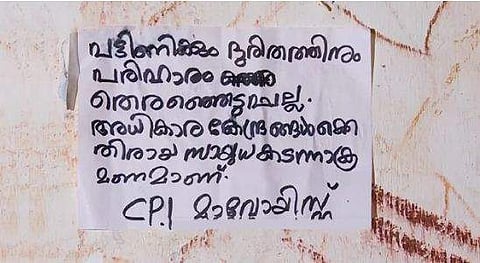 പട്ടിണിക്കും ദുരിതത്തിനും
പരിഹാരം
തെരഞ്ഞെടുപ്പല്ല.
അധികാര കേന്ദ്രങ്ങൾക്കെ
തിരായ സായുധകടന്നാക്ര
മണമാണ്.
CP.I മാവോയിസ്റ്റ്